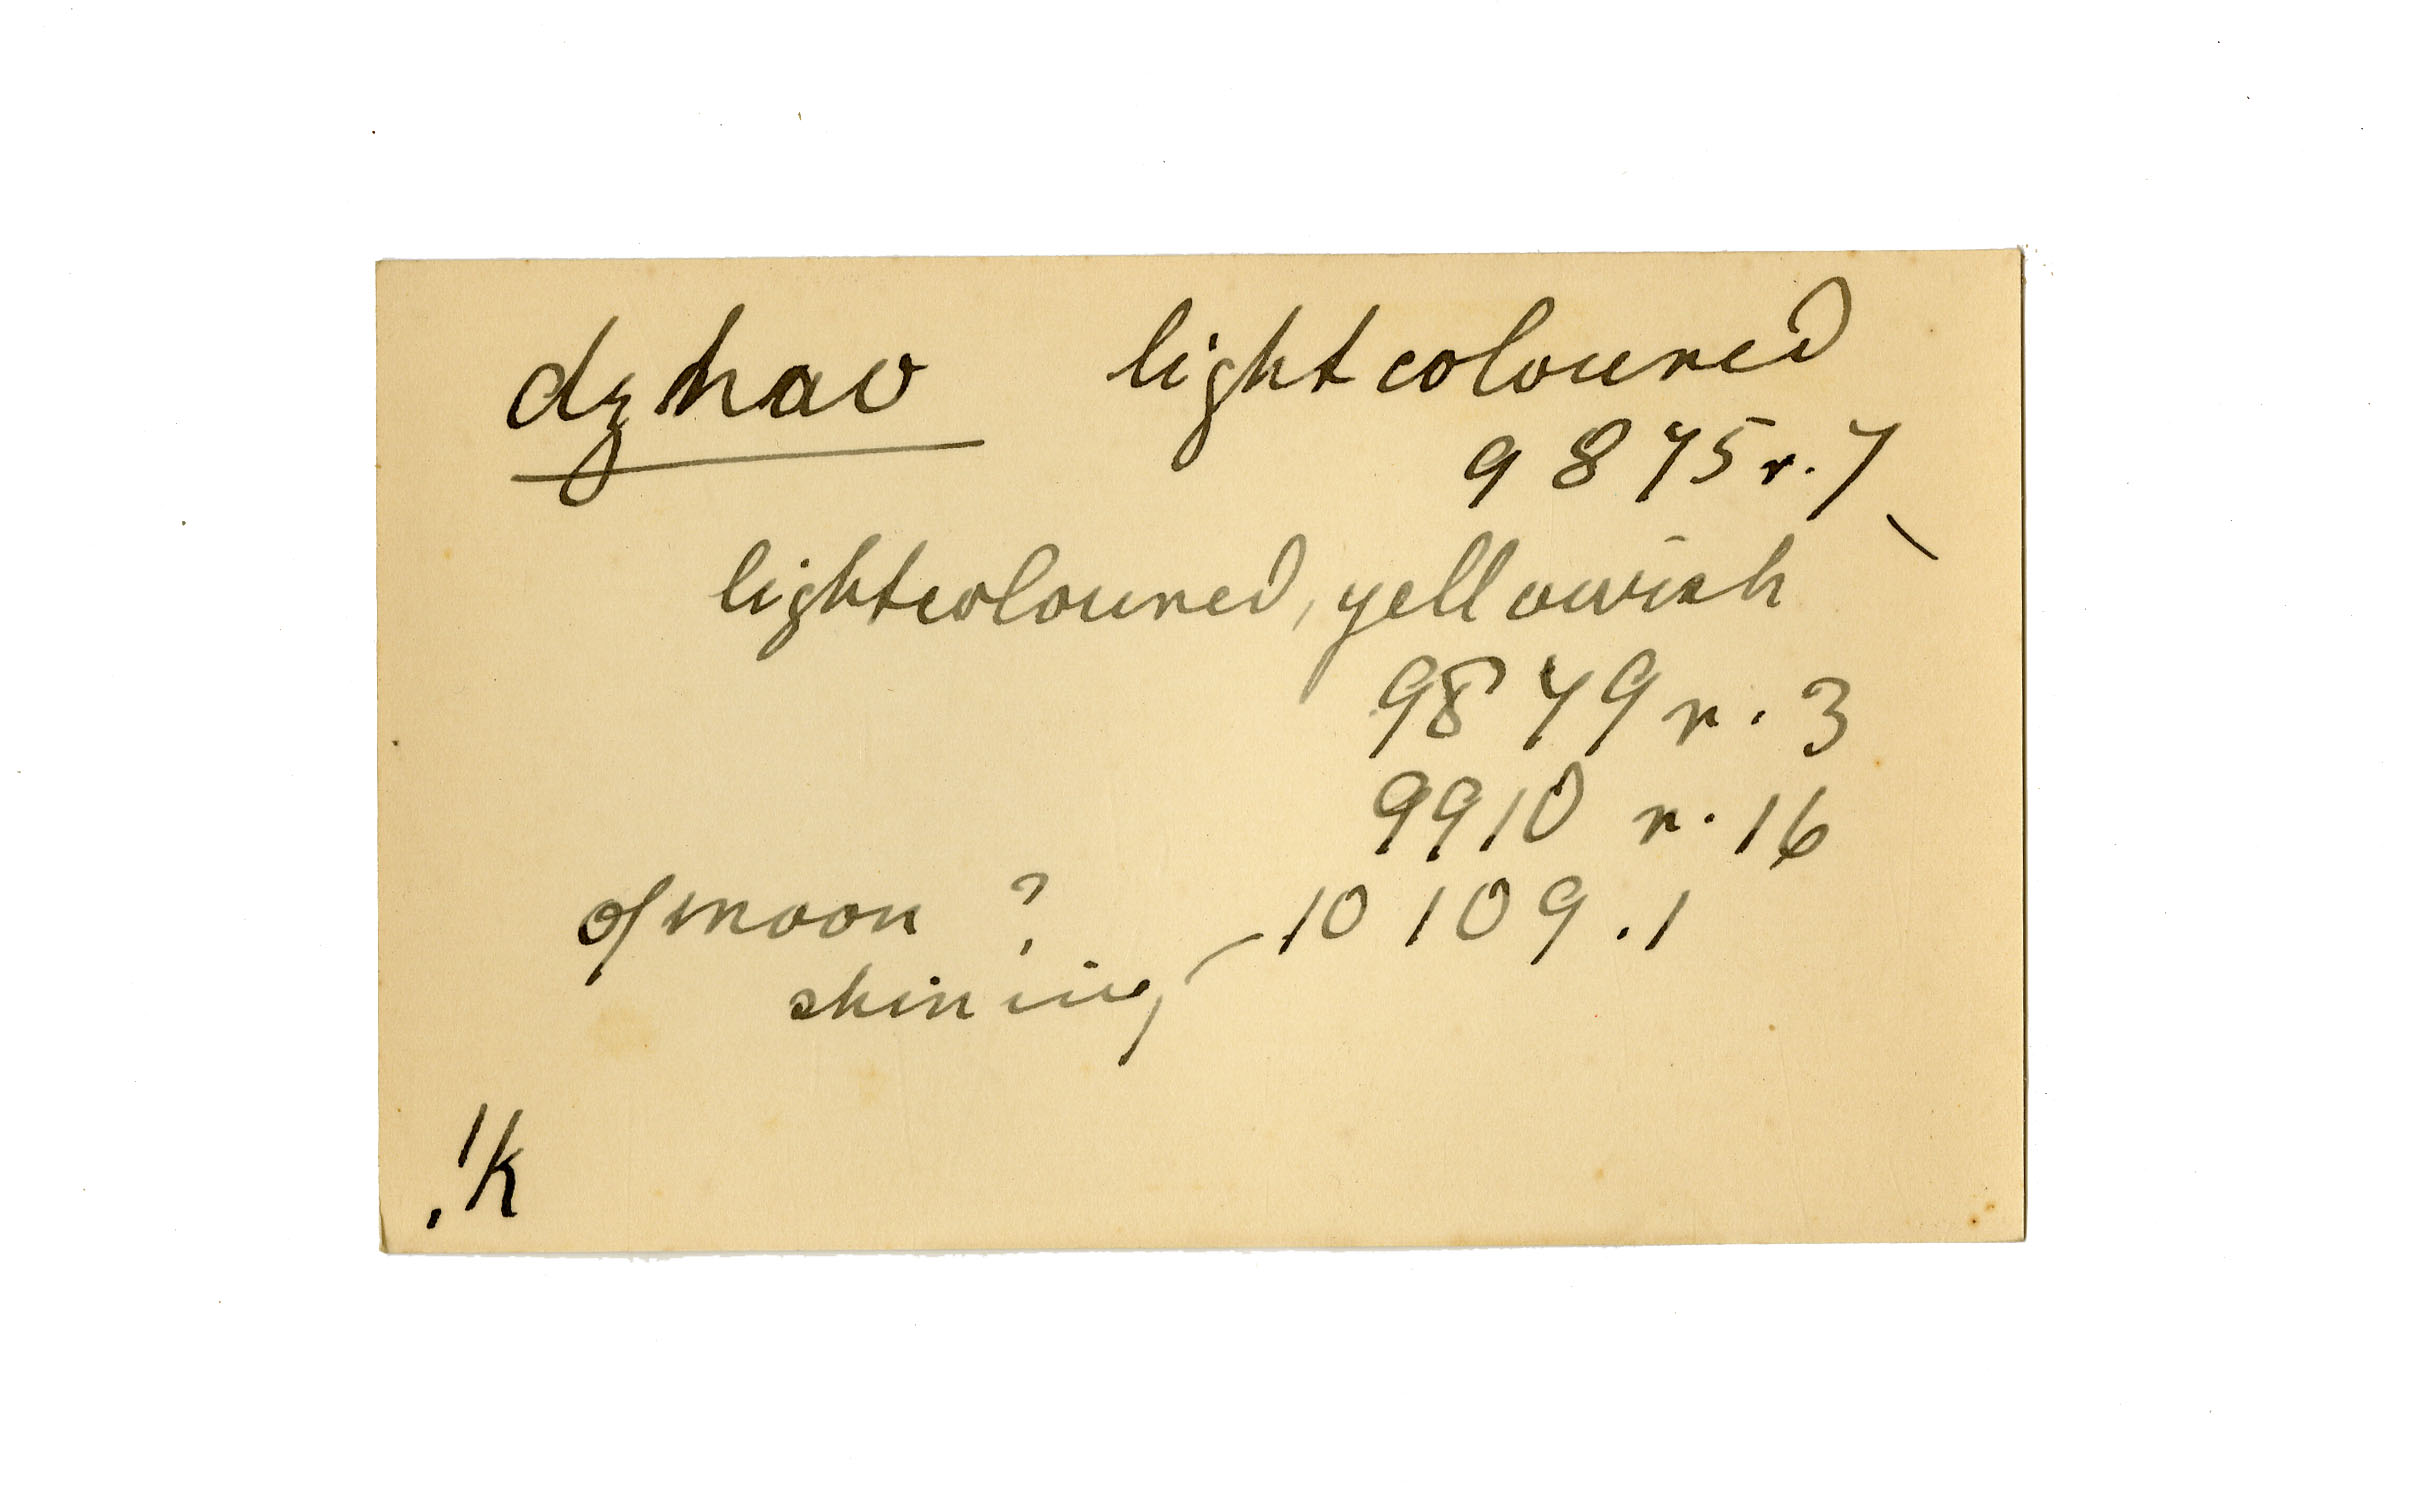 dzhao lightcoloured
9875 r. 7
lightcoloured, yellowish
9879 r. 3
9910 r. 16
of moon ? 10109.1
shining
!k